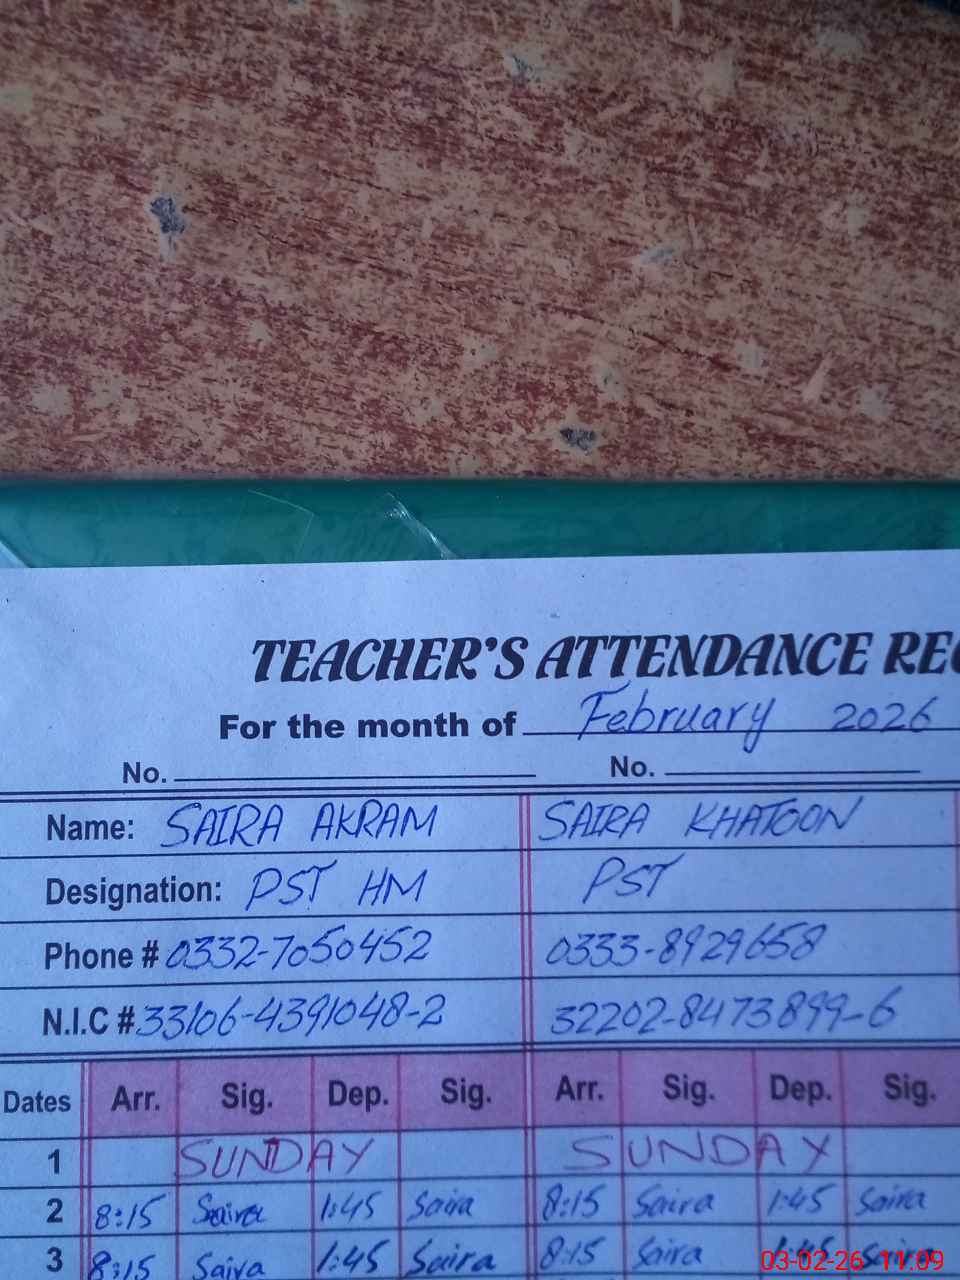 TEACHER'S ATTENDANCE REC
For the month of February 2026
No. No.
Name: SAIRA AKRAM SAIRA KHATOON
Designation: PST HM PST
Phone # 0332-7050452 0333-8929658
N.I.C # 33106-4391048-2 32202-8473899-6
Dates Arr. Sig. Dep. Sig. Arr. Sig. Dep. Sig.
1 SUNDAY SUNDAY
2 8:15 Saira 1:45 Saira 8:15 Saira 1:45 Saira
3 8:15 Saira 1:45 Saira 8:15 Saira 1:45 Saira
03-02-26 11:09